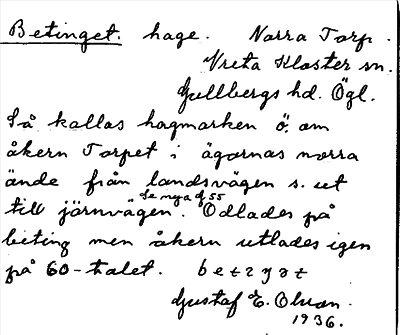 Betinget. hage. Norra Torp.
Vreta Kloster sn.
Gullbergs hd. Ögl.
Så kallas hagmarken ö. om
åkern Torpet i ägornas norra
ände från landsvägen s. ut
Se nya g 55
till järnvägen. Odlades på
beting men åkern utlades igen
på 60-talet. betzyət
Gustaf E. Olson.
1936.